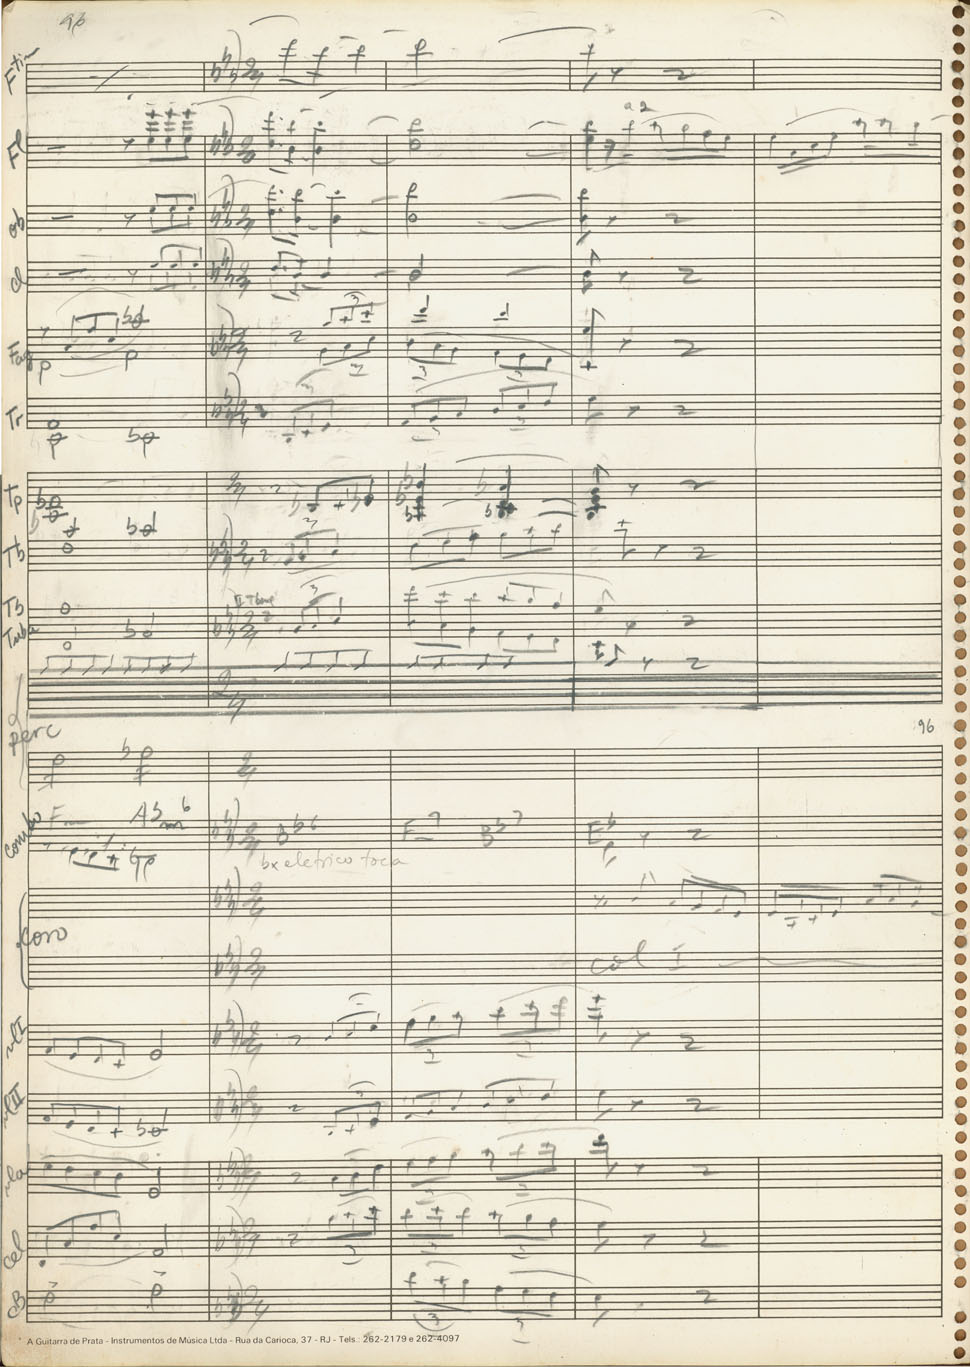 96
Ftin
Fl
a2
ob
cl
Fag
Tr
Tp
Tb
Tb
Tuba
Perc
96
Combo
Fm Abm6 Bb6 Fm7 Bb7 Eb
bx eletrico toca
Coro
col I
vlI
vlII
vla
cel
CB
A Guitarra de Prata - Instrumentos de Música Ltda - Rua da Carioca, 37 - RJ - Tels.: 262-2179 e 262-4097